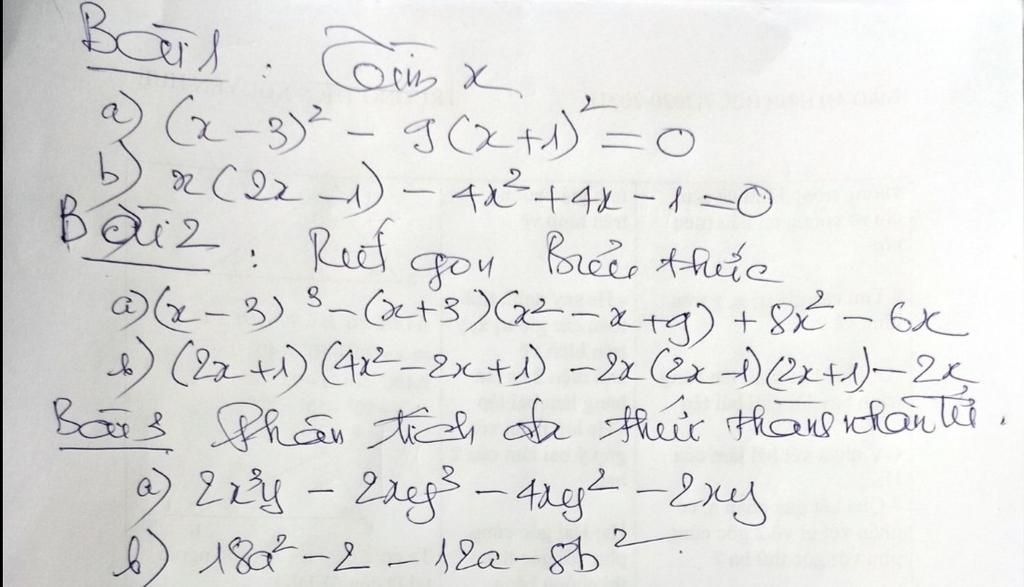 Bài 1 : Tìm x
a) (x - 3)² - 9(x+1)² = 0
b) x(2x - 1) - 4x² + 4x - 1 = 0
Bài 2 : Rút gọn Biểu thức
a) (x - 3)³ - (x+3)(x² - x + 9) + 8x² - 6x
b) (2x+1)(4x² - 2x + 1) - 2x(2x - 1)(2x+1) - 2x
Bài 3 Phân tích đa thức thành nhân tử.
a) 2x³y - 2xy³ - 4xy² - 2xy
b) 18a² - 2 - 12a - 8b²